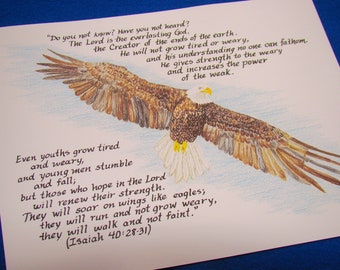 "Do you not know? Have you not heard?
The Lord is the everlasting God,
the Creator of the ends of the earth.
He will not grow tired or weary,
and his understanding no one can fathom.
He gives strength to the weary
and increases the power
of the weak.
Even youths grow tired
and weary,
and young men stumble
and fall;
but those who hope in the Lord
will renew their strength.
They will soar on wings like eagles;
they will run and not grow weary,
they will walk and not faint."
(Isaiah 40:28-31)